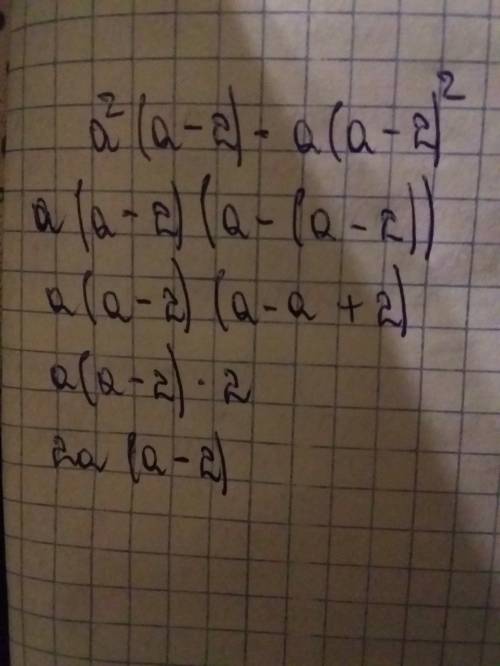 a²(a-2)-a(a-2)²
a(a-2)(a-(a-2))
a(a-2)(a-a+2)
a(a-2)·2
2a(a-2)